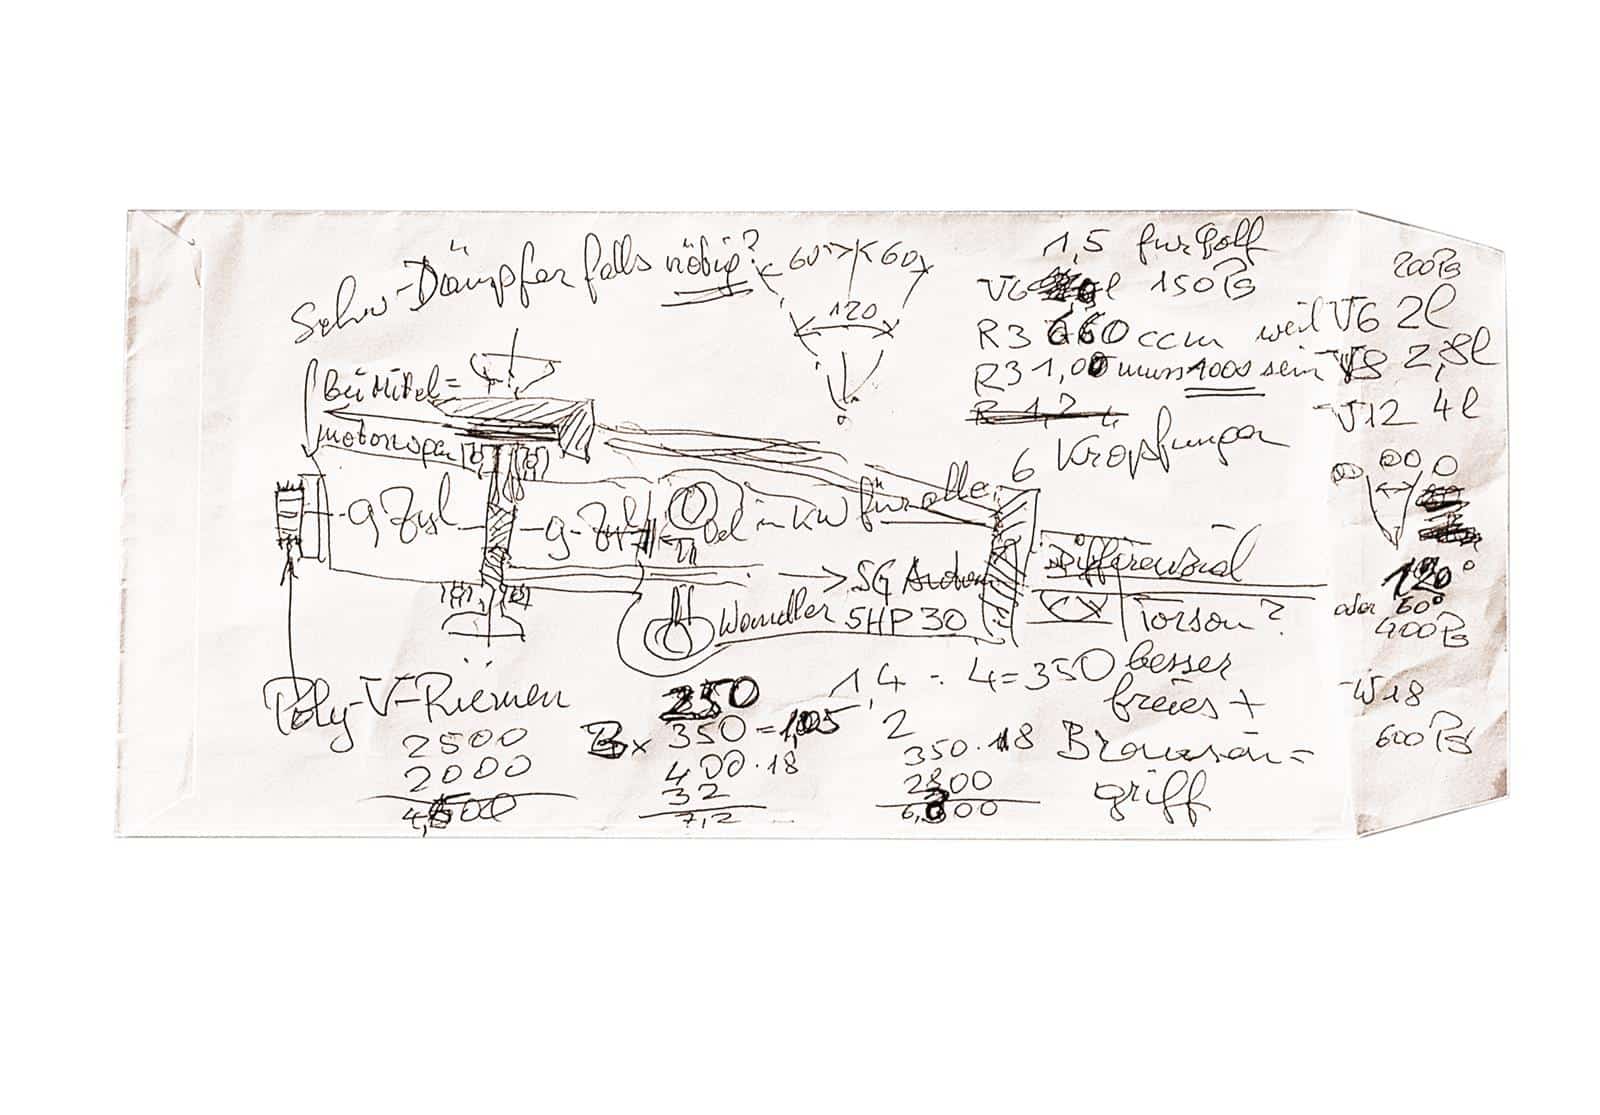 Schw-Dämpfer falls nötig?
60°
60
120
1,5 für Golf
V6 l 150 PS
R3 660 ccm weil V6 2l
R3 1,00 muss 1000 sein V8 2,8l
R 1,2
V12 4l
6 Kröpfungen
200 PS
Bei Mittel=
motorwagen
9 Zyl
9-Zyl
Öel in KW für alle
Differenzial
SG
Wandler 5HP30
Torson?
120°
oder 60°
400 PS
W18
600 PS
Poly-V-Riemen
2500
2000
4,500
250
x 350 = 1,05
400 · 18
32
7,2
1,4 : 4 = 350 besser
2
freies +
350 · 18
2800
6,300
griff